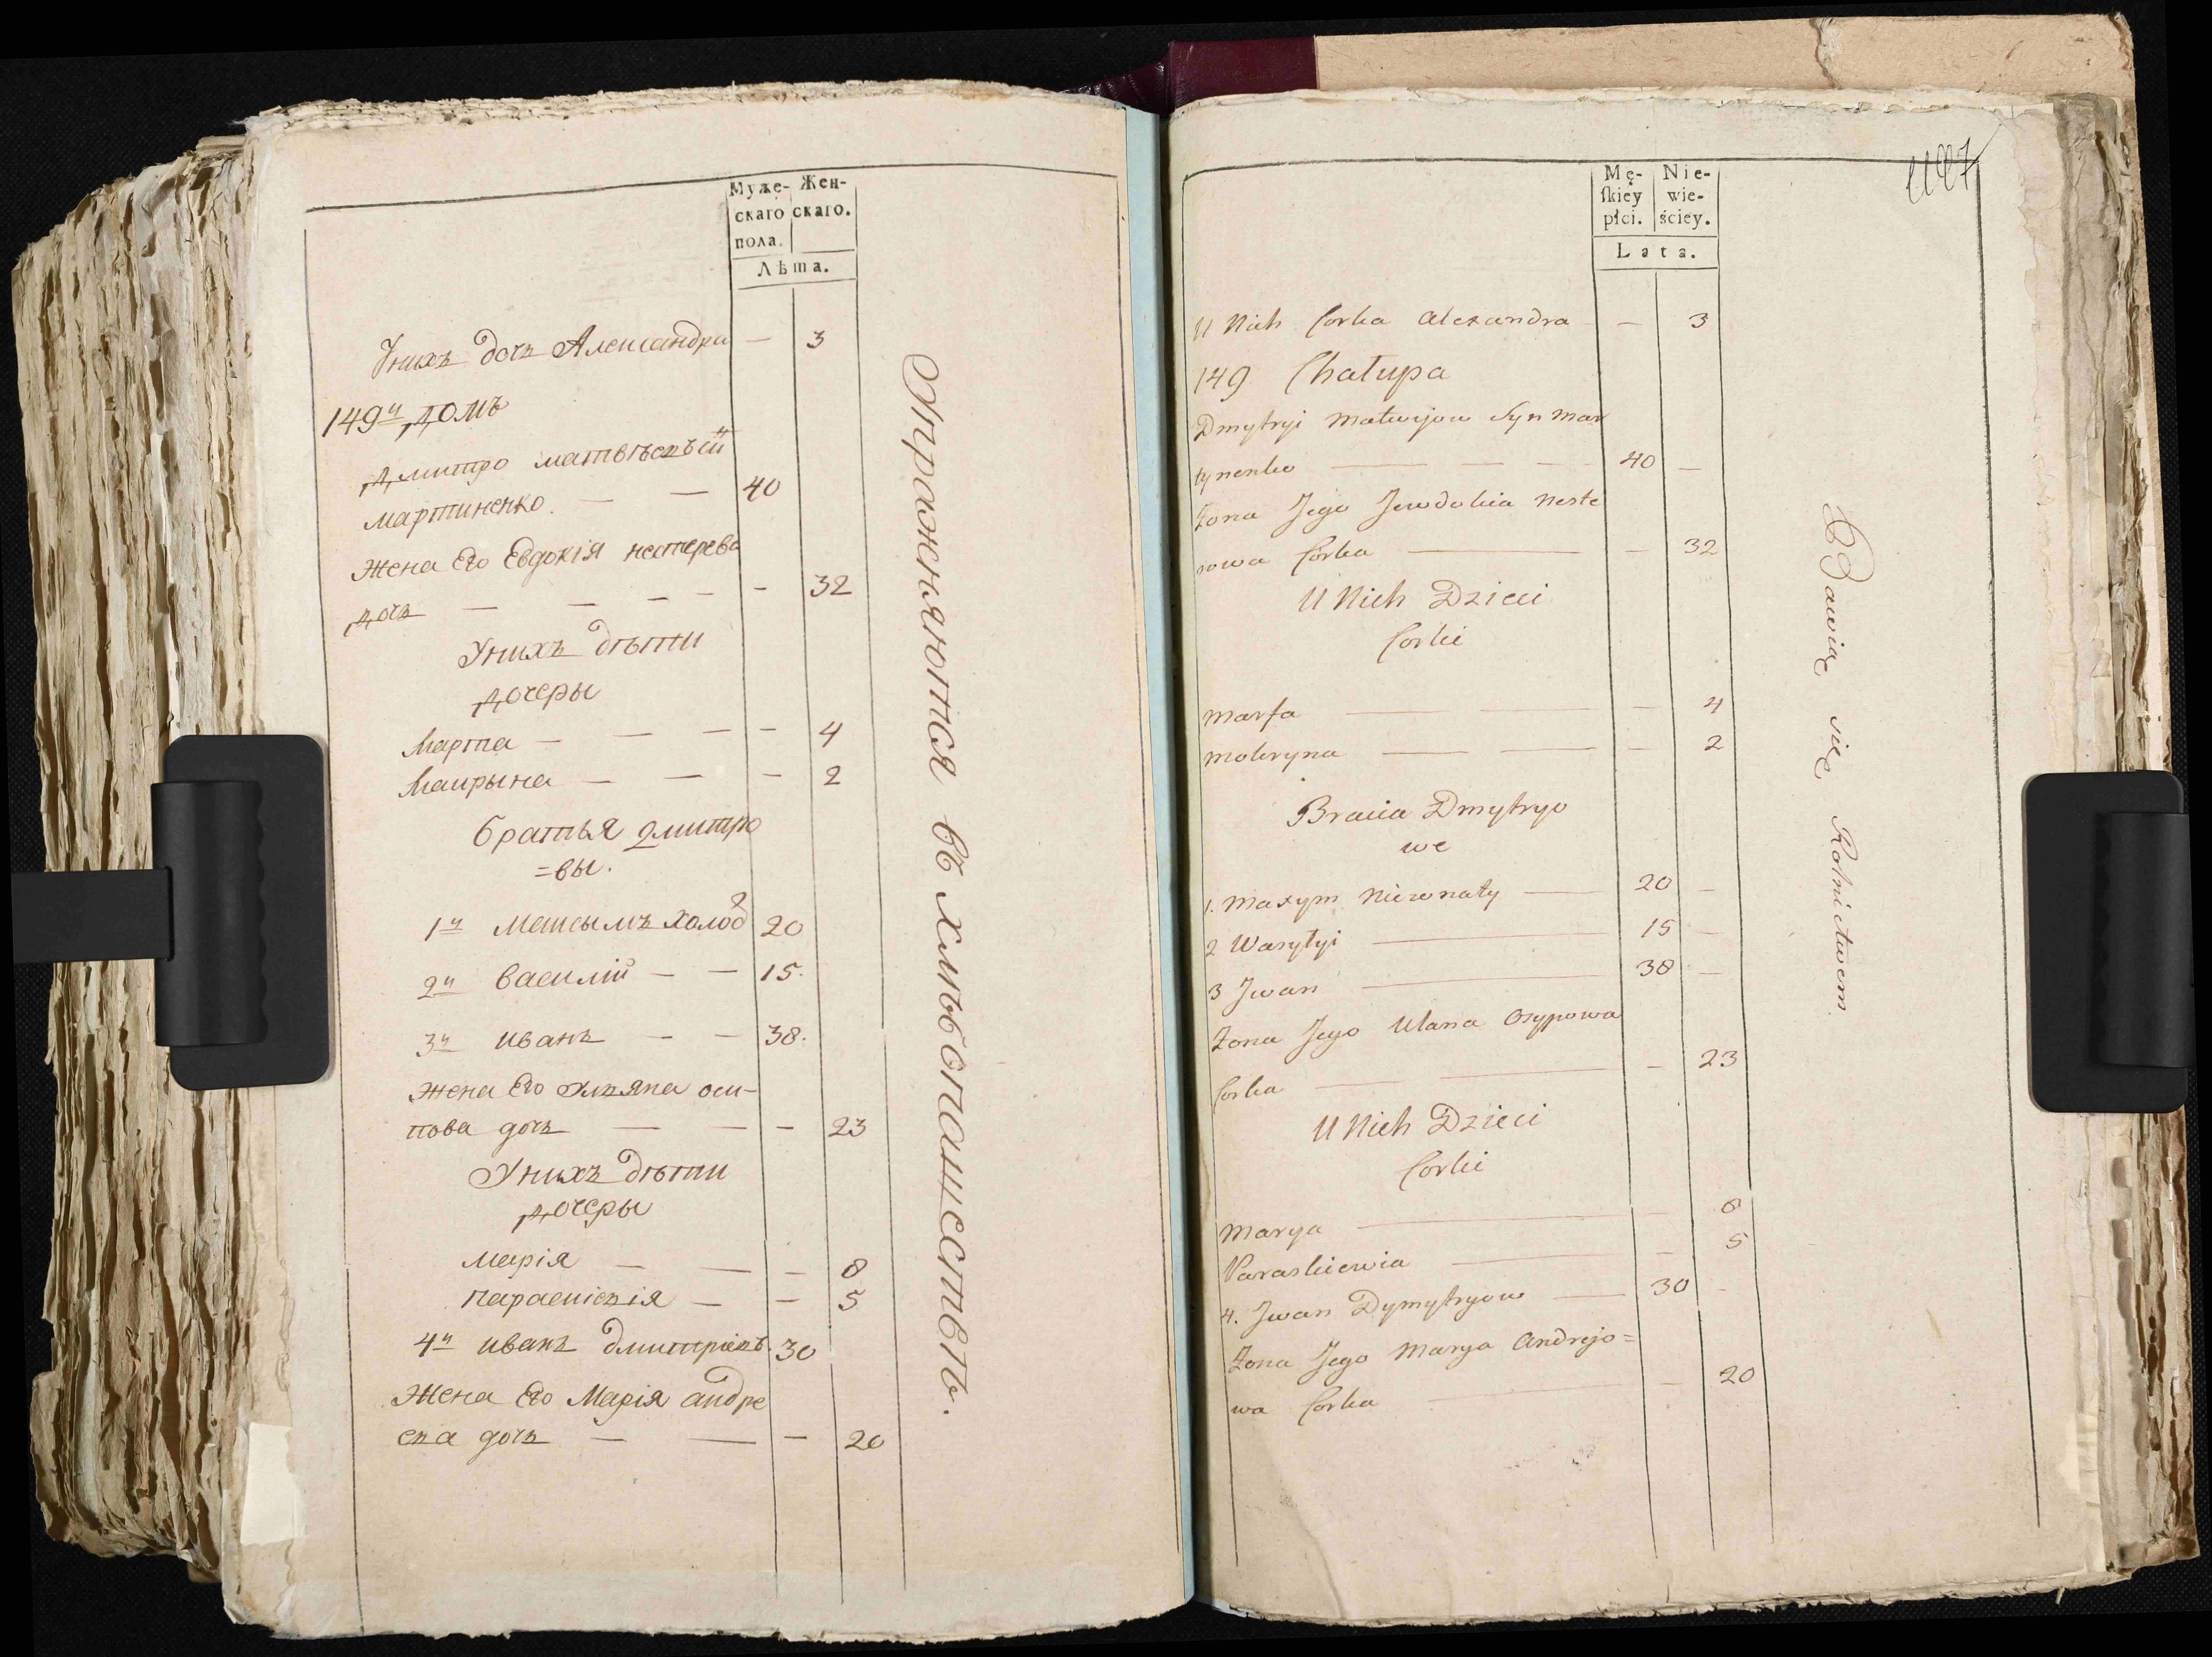 Муже- Жен-
скаго скаго.
пола.
Лѣта.
Унихъ дочь Александра — 3
149й домъ
Дмитро матвѣевъ сй
мартиненко. — — 40
Жена Его Евдокія нестерева
дочь — — — — — 32
Унихъ дѣти
дочеры
Марта — — — — 4
Макрына — — — 2
братья дмитро
=вы.
1й Максымъ холод 20
2й василій — — 15.
3й иванъ — — 38.
жена Его Ульяна оси-
пова дочь — — — 23
Унихъ дѣти
дочеры
марія — — — 8
параскієвія — — 5
4й иванъ дмитріевъ. 30
Жена Его Марія андре
ева дочь — — — 20
Упражняются въ хлѣбопашествѣ.
1127
Mę- Nie-
ſkiey wie-
płci. ściey.
Lata.
U Nich Corka Alexandra — — 3
149 Chałupa
Dmytryi Matwijow Syn Mar
tynenko — — — 40 —
Żona Jego Jewdokia Neste
rowa Córka — — 32
U Nich Dzieci
Corki
Marfa — — — 4
Mokryna — — — 2
Bracia Dmytryo
we
1. Maxym Nieżonaty — 20 —
2 Wasyłyi — 15 —
3 Jwan — 38 —
Żona Jego Ulana Osypowa
Corka — — — 23
U Nich Dzieci
Corki
Marya — — 8
Paraskiewia — — 5
4. Jwan Dymytryow — 30 —
Żona Jego Marya Andrejo=
wa Corka — — 20
Bawią się Rolnictwem